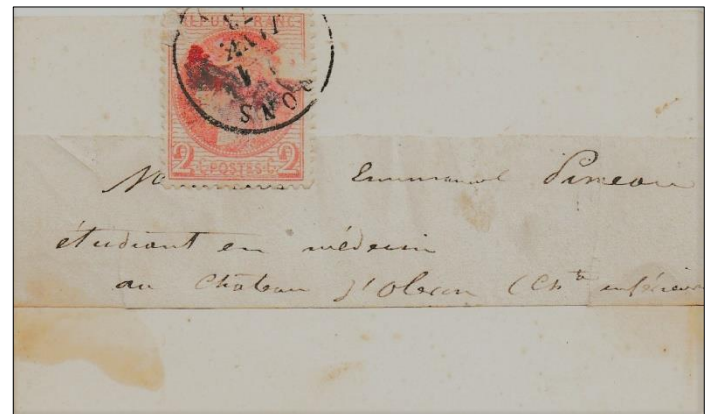 REPUB FRANC
PONS
1
2 C POSTES C 2
Emmanuel Pineau
étudiant en médecin
au Chateau d'Oleron (Ch.te inférieur